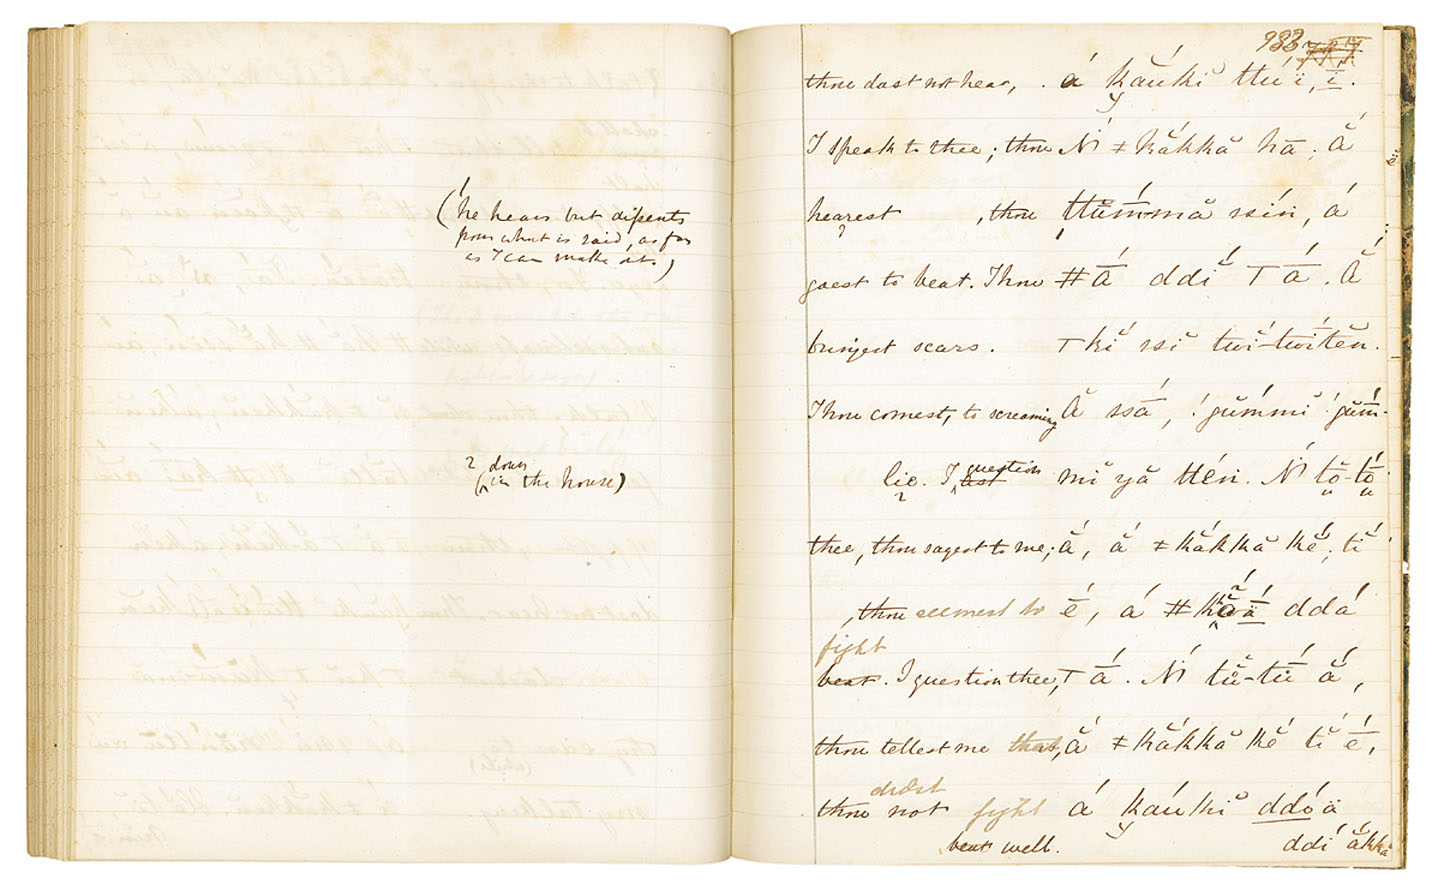 (he hears but dissents
from what is said, as far
as I can make out.)
? down
(in the house)
983
thou dost not hear, . á k̬auki ttu i, ī.
I speak to thee; thou Ń ǂkákka hā; ắ
hearest , thou ttúm̄ma ssín, á
goest to beat. Thou ǂǂā́ ddí T ā́. Ắ
bringest scars. T kí ssi twí-twī́tĕn.
Thou comest, to screaming Ắ ssā́, !gúmmi !gúm̄-
lie. I ask question mi yă ttén. Ń tŏ-tŏ́
thee, thou sayest to me; ắ, ắ ǂkákka kĕ́, tĭ́
, thou seemest to ḗ, á ǂǂ ddá
fight
beat. I question thee, T ā́. Ń tŭ́-tū́ ắ,
thou tellest me that, ắ ǂkákka kĕ́ tĭ́ ḗ,
didst
thou not fight á k̬auki ddóä
beat well. ddí ăkka